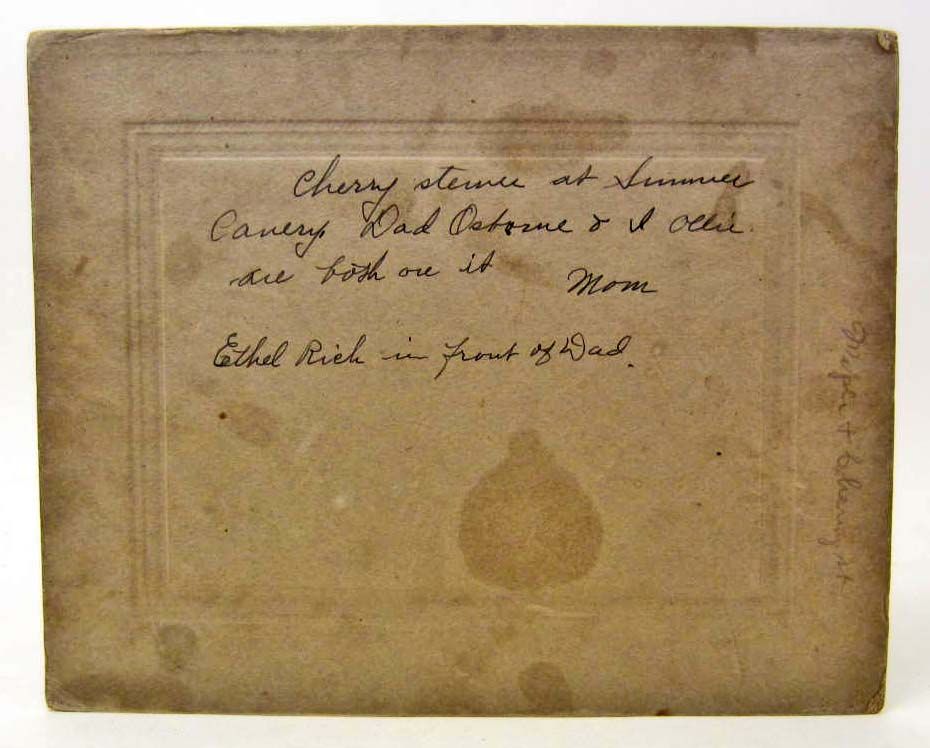 Cherry stemer at Sumner
Canery. Dad Osborne & I Ollie.
are both on it
Mom
Ethel Rich in front of Dad.
+ Cherry st